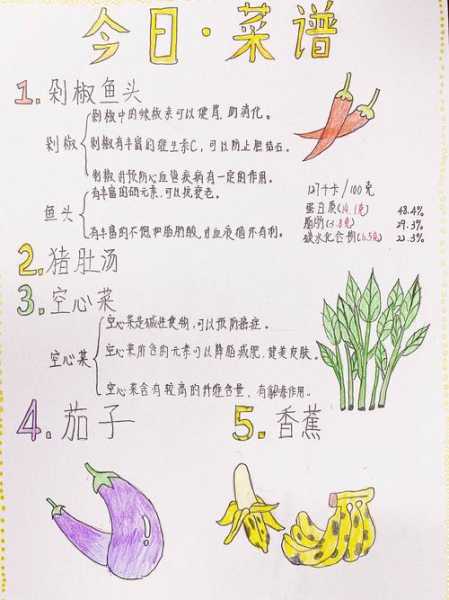 今日·菜谱
1.剁椒鱼头
剁椒
剁椒中的辣椒素可以健胃,助消化。
剁椒有丰富的维生素C,可以防止胆结石。
剁椒对预防心血管疾病有一定的作用。
鱼头
有丰富的硒元素,可以抗衰老。
有丰富的不饱和脂肪酸,对血液循环有利。
127千卡/100克
蛋白质 48.4%
脂肪 29.3%
碳水化合物 22.3%
2.猪肚汤
3.空心菜
空心菜
空心菜是碱性食物,可以预防癌症。
空心菜所含的元素可以降脂减肥,健美皮肤。
空心菜含有较高的纤维含量,有解毒作用。
4.茄子
5.香蕉